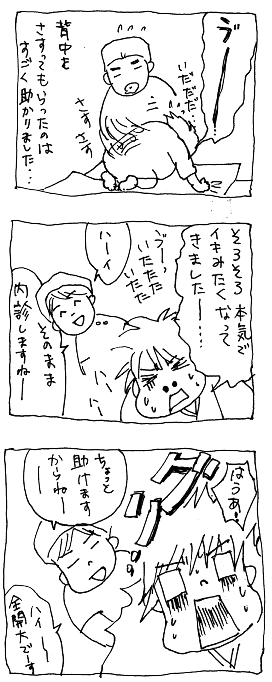 ヴーーー
いだだだ…
背中を
さすってもらったのは
すごく助かりました…
さす
さす
そろそろ本気で
イキみたくなって
きました〜…
ヴーっ
いたたた
いたた
ハーイ
そのまま
内診しますねー
はうあ!
グリッ
ちょっと
助けます
からねー
ハイ〜
全開大でーす